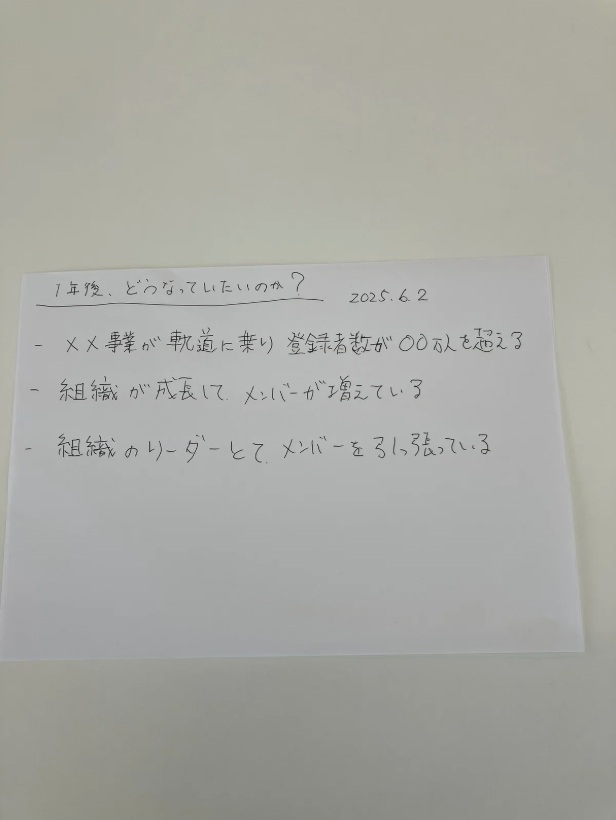 1年後、どうなっていたいのか? 2025.6.2
- ××事業が軌道に乗り 登録者数が〇〇万人を超える
- 組織が成長して、メンバーが増えている
- 組織のリーダーとして、メンバーを引っ張っている